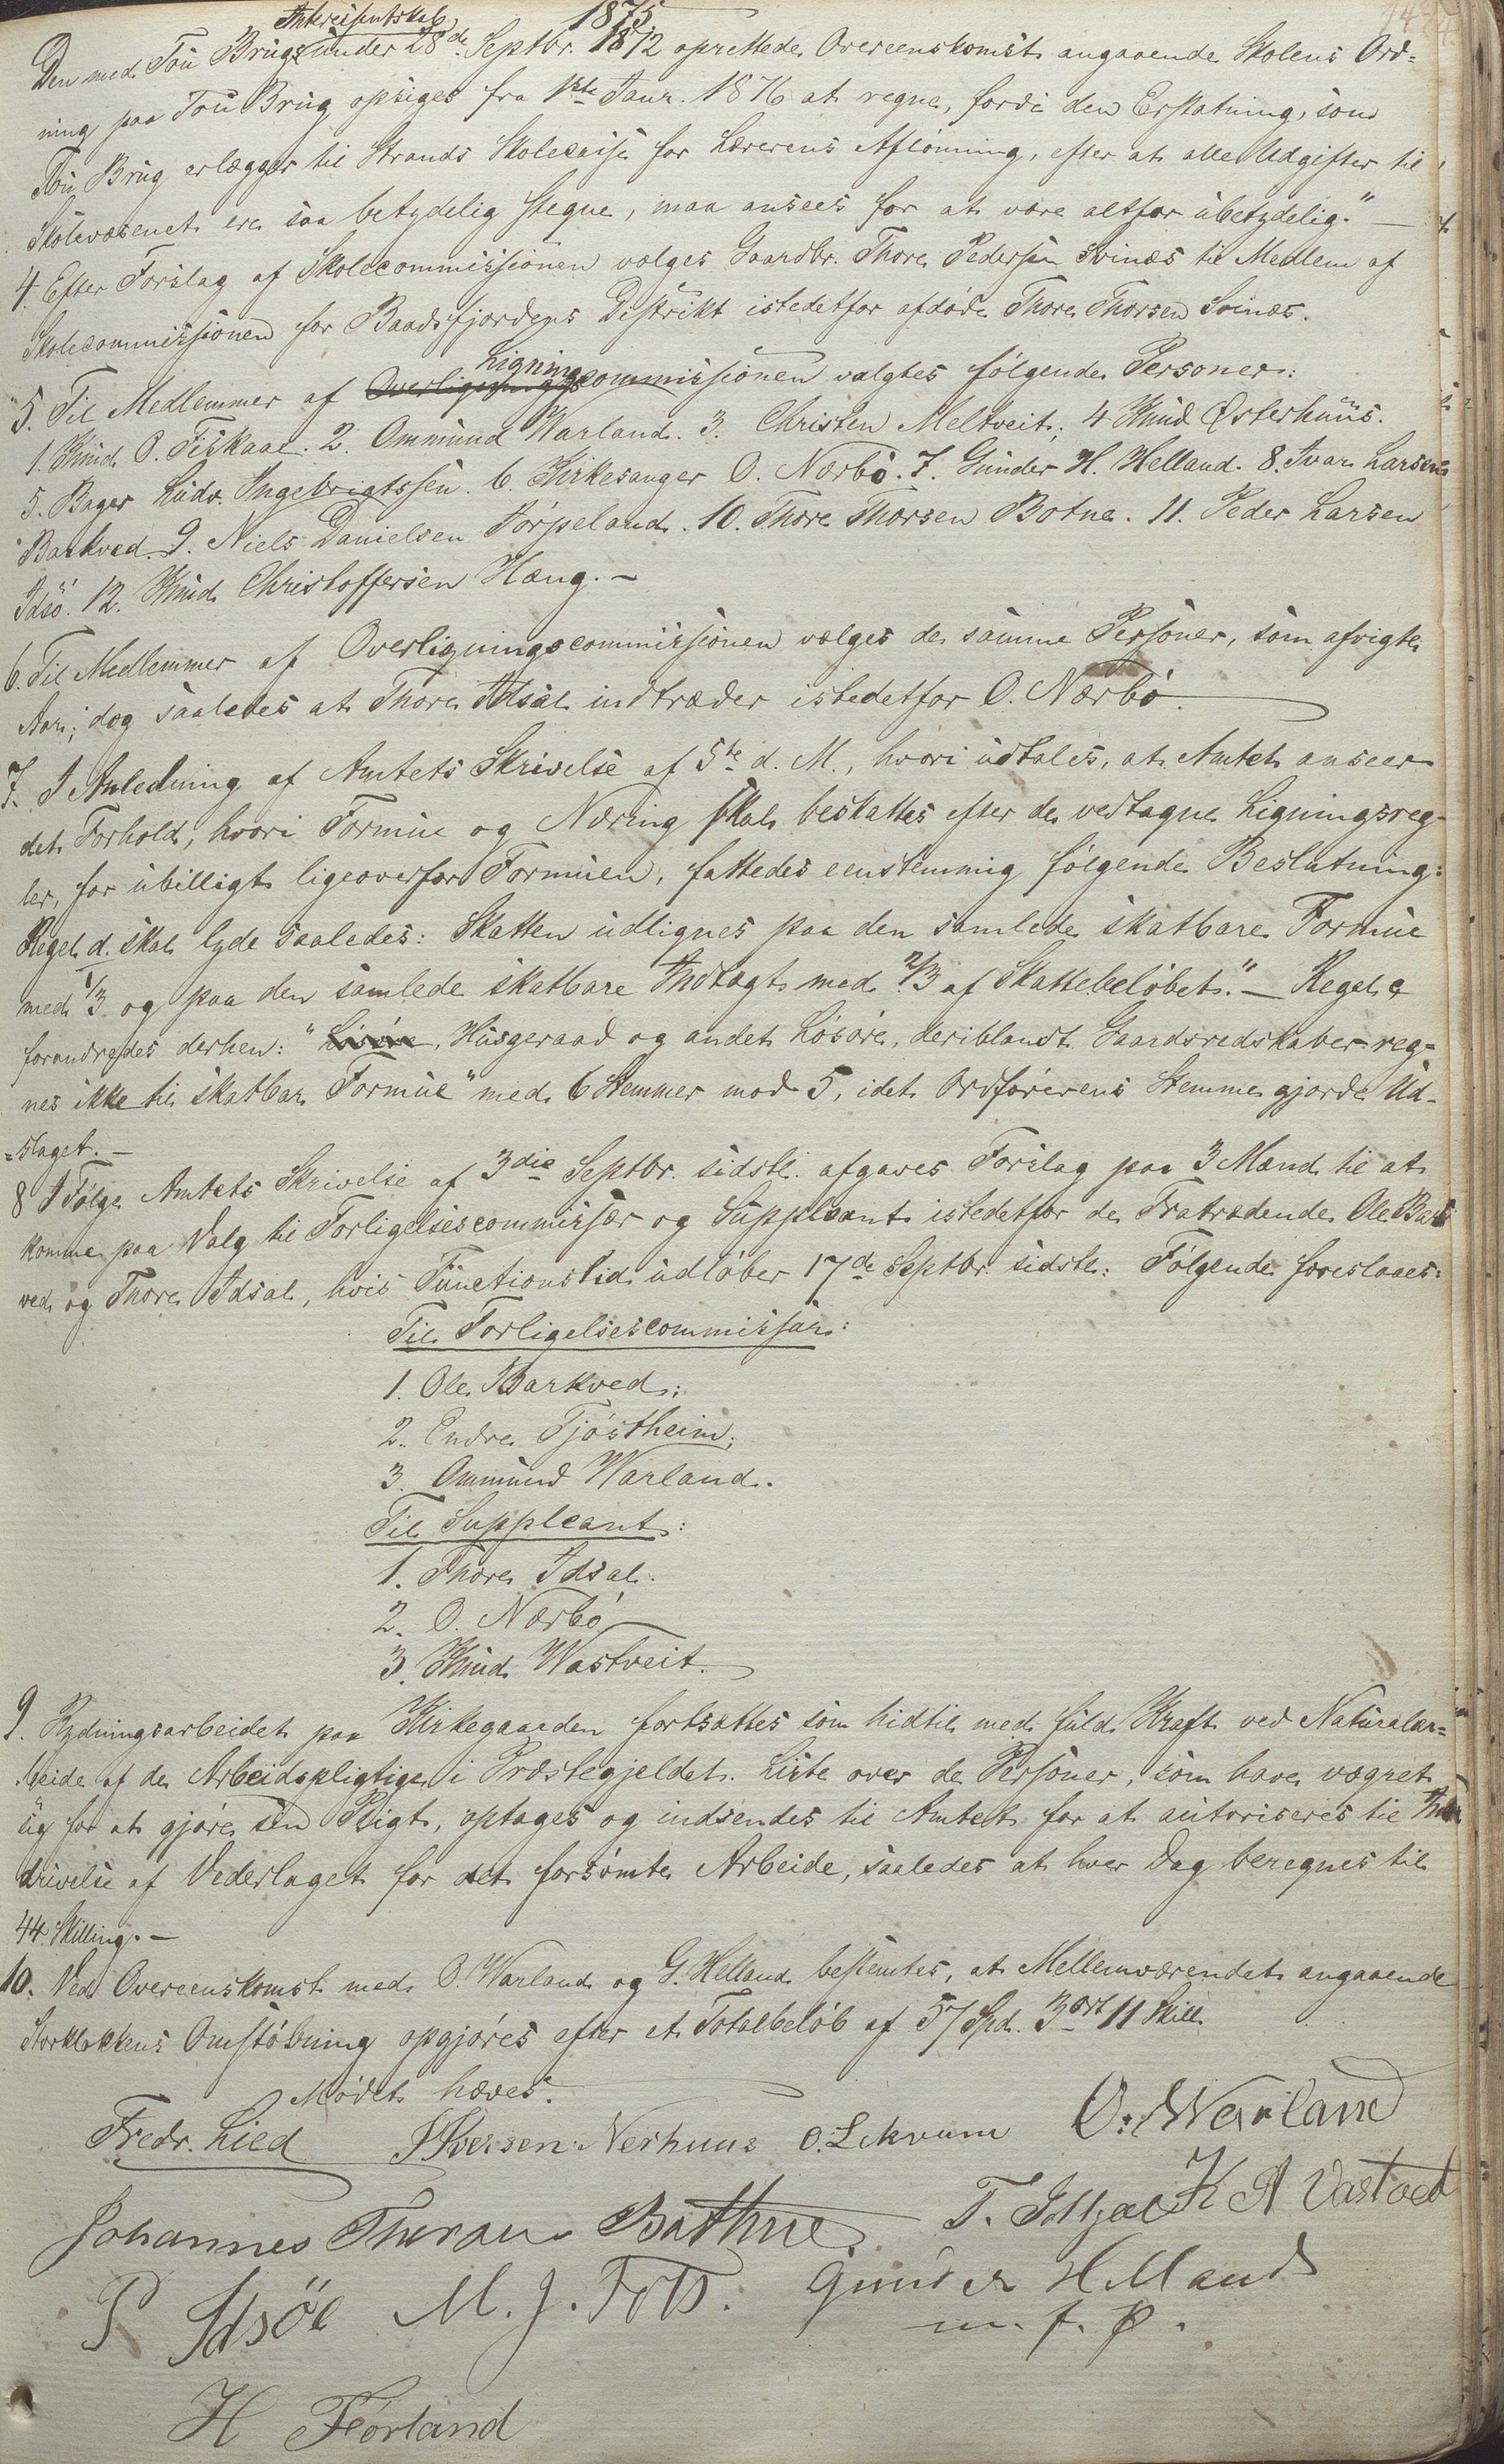 1875.
Den med Tou Brugs Interessentskab under 28de Septbr. 1872 oprettede Overeenskomst angaaende Skolens Ord-
ning paa Tou Brug opsiges fra 1ste Janr. 1876 at regne, fordi den Erstatning, som
Tou Brug erlægger til Strands Skolecasse for Lærerens Aflönning, efter at alle Udgifter til
Skolevæsenet ere saa betydelig stegne, maa ansees for at være altfor ubetydelig." —
4. Efter Forslag af Skolecommissionen vælges Gaardbr. Thore Pedersen Svinæs til Medlem af
Skolecommissionen for Baadsfjordens Distrikt istedetfor afdöde Thore Thorsen Svinæs.
5. Til Medlemmer af Ligningscommissionen valgtes fölgende Personer:
1. Knud O. Fiskaae. 2. Ommund Warland. 3. Christen Meltveit; 4 Knud Østerhuus.
5. Bager Ludv. Ingebrigtssen. 6. Kirkesanger O. Nærbö. 7. Gunder H. Helland. 8. Ivar Larsen
Barkved. 9. Niels Danielsen Jörpeland. 10. Thore Thorsen Botne. 11. Peder Larsen
Idsö. 12. Knud Christoffersen Hæng. —
6. Til Medlemmer af Overligningscommissionen vælges de samme Personer, som afvigte
Aar; dog saaledes at Thore Idsal indtræder istedetfor O. Nærbö.
7. I Anledning af Amtets Skrivelse af 5te d. M., hvori udtales, at Amtet anseer
det Forhold, hvori Formue og Næring skal beskattes efter de vedtagne Ligningsreg-
ler, for ubilligt ligeoverfor Formuen, fattedes eenstemmig fölgende Beslutning:
Regel d. skal lyde saaledes: Skatten udlignes paa den samlede skatbare Formue
med 1/3 og paa den samlede skatbare Indtægt med 2/3 af Skattebelöbet." — Regel e
forandredes derhen: "Husgeraad og andet Lösöre, deriblandt Gaardsredskaber reg-
nes ikke til skatbar Formue" med 6 Stemmer mod 5, idet Ordförerens Stemme gjorde Ud-
=slaget. —
8 I Fölge Amtets Skrivelse af 3die Septbr. sidstl. afgaves Forslag paa 3 Mænd til at
komme paa Valg til Forligelsescommissær og Suppleant istedetfor de Fratrædende Ole Bark
ved og Thore Idsal, hvis Functionstid udlöber 17de Septbr. sidstl: Fölgende foreslaaes:
Til Forligelsescommissær:
1. Ole Barkved;
2. Endre Tjöstheim;
3. Ommund Warland.
Til Suppleant:
1. Thore Idsal.
2. O. Nærbö
3. Knud Wastveit.
9. Rydningsarbeidet paa Kirkegaarden fortsættes som hidtil med fuld Kraft ved Naturalar=
beide af de Arbeidspligtige i Præstegjeldet. Liste over de Personer, som have vægret
sig for at gjöre sin Pligt, optages og indsendes til Amtet for at autoriseres til Ind
drivelse af Vederlaget for det forsömte Arbeide, saaledes at hver Dag beregnes til
44 Skilling. —
10. Ved Overeenskomst med O. Warland og G. Helland bestemtes, at Mellemværendet angaaende
Storklokkens Omstöbning opgjöres efter et Totalbelöb af 57 Spd. 3 Ort 11 Skill.
Mödet hæves.
Fredr. Lied I Iversen Nerhuus O. Lekvam O. Warland
Johannes Thoran Bathne T. Idsal K A Vastvet
P Idsöe M. J. Tou. Gunder Helland
m. f. P.
H Förland